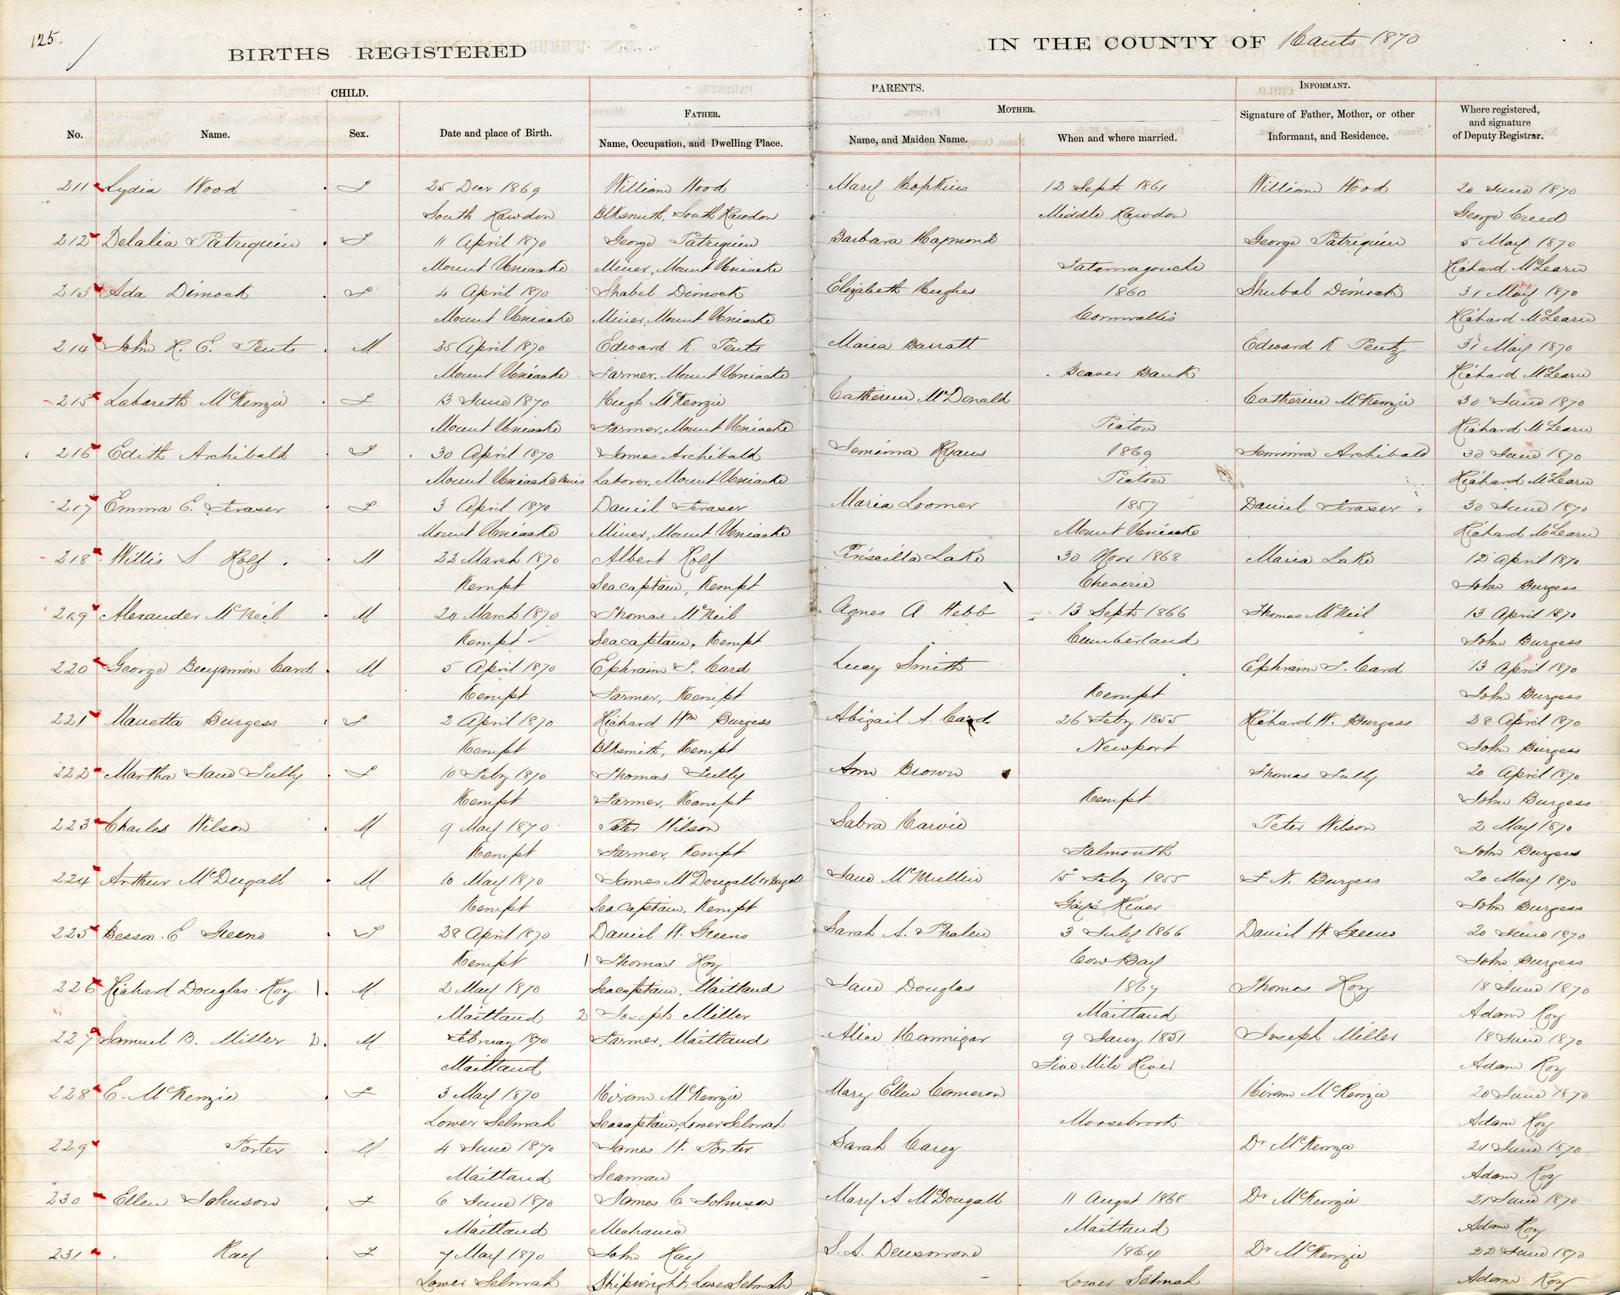 125.
BIRTHS REGISTERED IN THE COUNTY OF Hants 1870
CHILD. PARENTS. INFORMANT.
FATHER. MOTHER.
No. Name. Sex. Date and place of Birth. Name, Occupation, and Dwelling Place. Name, and Maiden Name. When and where married. Signature of Father, Mother, or other Informant, and Residence. Where registered, and signature of Deputy Registrar.
211 Lydia Wood F 25 Decr 1869 William Wood Mary Hopkins 12 Sept 1861 William Wood 20 June 1870
South Rawdon Blksmith, South Rawdon Middle Rawdon George Creed
212 Delalia Patriquin F 11 April 1870 George Patriquin Barbara Hapmond George Patriquin 5 May 1870
Mount Uniacke Miner, Mount Uniacke Tatamagouche Richard McLearn
213 Ada Dimock F 4 April 1870 Shabel Dimock Elizabeth Hughes 1860 Shubal Dimock 31 May 1870
Mount Uniacke Miner, Mount Uniacke Cornwallis Richard McLearn
214 John H. E. Pents M 25 April 1870 Edward K. Pents Maria Barratt Edward K Pentz 31 May 1870
Mount Uniacke Farmer, Mount Uniacke Beaver Bank Richard McLearn
215 Labareth McKenzie F 13 June 1870 Hugh McKenzie Catherine McDonald Catherine McKenzie 30 June 1870
Mount Uniacke Farmer, Mount Uniacke Pictou Richard McLearn
216 Edith Archibald F 30 April 1870 James Archibald Jemima Ryans 1869 Jemima Archibald 30 June 1870
Mount Uniacke Mines Laborer, Mount Uniacke Pictou Richard McLearn
217 Emma E. Fraser F 3 April 1870 Daniel Fraser Maria Loomer 1857 Daniel Fraser 30 June 1870
Mount Uniacke Miner, Mount Uniacke Mount Uniacke Richard McLearn
218 Willis S Rolf M 22 March 1870 Albert Rolf Priscilla Lake 30 Novr 1868 Maria Lake 12 April 1870
Kempt Seacaptain, Kempt Cheverie John Burgess
219 Alexander McNeil M 24 March 1870 Thomas McNeil Agnes A Webb 13 Sept 1866 Thomas McNeil 13 April 1870
Kempt Seacaptain, Kempt Cumberland John Burgess
220 George Benjamin Card M 5 April 1870 Ephraim S. Card Lucy Smith Ephraim S. Card 13 April 1870
Kempt Farmer, Kempt Kempt John Burgess
221 Manetta Burgess F 2 April 1870 Richard Wm Burgess Abigail A. Card 26 Feby 1855 Richard W. Burgess 28 April 1870
Kempt Blksmith, Kempt Newport John Burgess
222 Martha Jane Tully F 10 Feby 1870 Thomas Tully Ann Brown Thomas Tully 20 April 1870
Kempt Farmer, Kempt Kempt John Burgess
223 Charles Wilson M 9 May 1870 Peter Wilson Sabra Harvie Peter Wilson 2 May 1870
Kempt Farmer, Kempt Falmouth John Burgess
224 Arthur McDugall M 10 May 1870 James McDougall or Dugall Jane McMullin 15 Feby 1855 F. N. Burgess 20 May 1870
Kempt Seacaptain, Kempt Gays River John Burgess
225 Bessa E Greeno F 28 April 1870 Daniel W. Greeno Sarah A. Phalen 3 July 1866 Daniel W. Greeno 20 June 1870
Kempt 1 Thomas Roy Cow Bay John Burgess
226 Richard Douglas Roy 1. M 2 May 1870 Seacaptain, Maitland Jane Douglas 1867 Thomas Roy 18 June 1870
Maitland 2 Joseph Miller Maitland Adam Roy
227 Samuel B. Miller 2. M Febuary 1870 Farmer, Maitland Alice Hannigar 9 Jany 1851 Joseph Miller 18 June 1870
Maitland Five Mile River Adam Roy
228 E. McKenzie F 3 May 1870 Hiram McKenzie Mary Ellen Cameron Hiram McKenzie 20 June 1870
Lower Selmah Seacaptain, Lower Selmah Moosebrook Adam Roy
229 Porter M 4 June 1870 James W. Porter Sarah Carey Dr McKenzie 21 June 1870
Maitland Seaman Adam Roy
230 Ellen Johnson F 6 June 1870 James C Johnson Mary A McDougall 11 Augst 1868 Dr McKenzie 21 June 1870
Maitland Mechanic Maitland Adam Roy
231 Ray F 7 May 1870 John Ray S. A. Densmore 1864 Dr McKenzie 22 June 1870
Lower Selmah Shipwright, Lower Selmah Lower Selmah Adam Roy